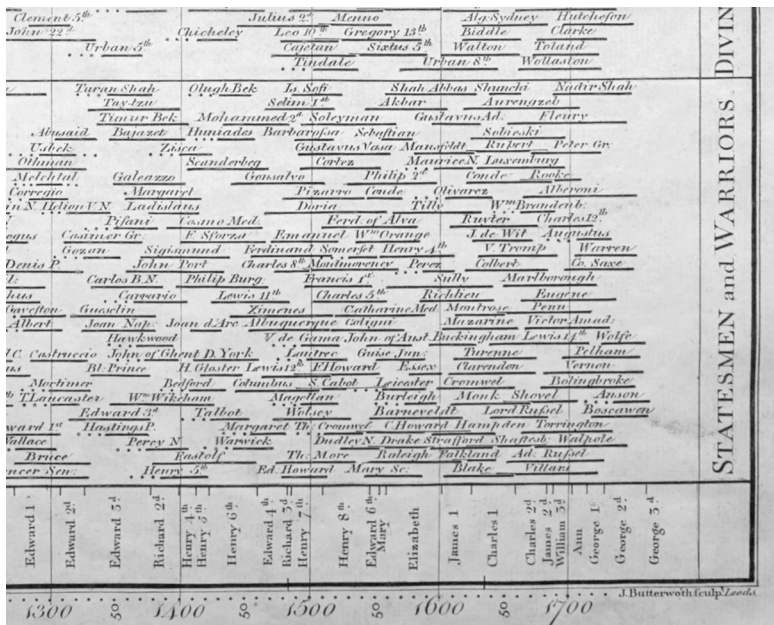 Clement 5th. Julius 2d Menno Alg: Sydney Hutcheson
John 22d Chicheley Leo 10th Gregory 13th Biddle Clarke
Urban 5th Cajetan Sixtus 5th Walton Toland
Tindale Urban 8th Wollaston
DIVIN
Turan Shah Olugh Bek Is. Sofi Shah Abbas Shunchi Nadir Shah
Tay-tzu Selim 1st Akbar Aurengzeb
Timur Bek Mohammed 2d Soleyman Gustavus Ad. Fleury
Abusaid Bajazet Huniades Barbarossa Sebastian Sobieski
Usbek Zisca Gustavus Vasa Mansfeldt Rupert Peter Gr.
Othman Scanderbeg Cortez Maurice N. Luxemburg
Melchtal Galeazzo Gonsalvo Philip 2d Conde Rooke
Corregio Margaret Pizarro Conde Olivarez Alberoni
in N. Helion V.N Ladislaus Doria Tilly Wm Brandenb.
Pisani Cosmo Med. Ferd. of Alva Ruyter Charles 12th
ogus Casimer Gr. F. Sforza Emanuel Wm Orange J. de Wit Augustus
Gozan Sigismund Ferdinand Somerset Henry 4th V. Tromp Warren
Denis P. John Port Charles 8th Montmorency Perez Colbert Co. Saxe
Carlos B.N. Philip Burg Francis 1st Sully Marlborough
hus Carrario Lewis 11th Charles 5th Richlieu Eugene
Gaveston Guesclin Ximenes Catharine Med. Montrose Penn
Albert Joan Nap. Joan d'Arc Albuquerque Coligni Mazarine Victor Amad.
Hawkwood V. de Gama John of Aust. Buckingham Lewis 14th Wolfe
J.C. Castruccio John of Ghent D. York Lautrec Guise Jun. Turenne Pelham
us Bl. Prince H. Gloster Lewis 12th F Howard Essex Clarendon Vernon
Mortimer Bedford Columbus S. Cabot Leicester Cromwel Bolingbroke
th T. Lancaster Wm Wikeham Magellan Burleigh Monk Shovel Anson
Edward 3d Talbot Wolsey Barneveldt Lord Russel Boscawen
ward 1st Hastings P. Margaret Th. Cromwel C. Howard Hampden Torrington
Wallace Percy N Warwick Dudley N. Drake Strafford Shaftesb. Walpole
Bruce Fastolf Th. More Raleigh Falkland Ad. Russel
ncer Sen. Henry 5th Ed. Howard Mary Sc. Blake Villars
STATESMEN and WARRIORS
Edward 1
Edward 2d
Edward 3d
Richard 2d
Henry 4th
Henry 5th
Henry 6th
Edward 4th
Richard 3d
Henry 7th
Henry 8th
Edward 6th
Mary
Elizabeth
James 1
Charles 1
Charles 2d
James 2d
William 3d
Ann
George 1st
George 2d
George 3d
J. Butterworth sculpt Leeds.
1300 50 1400 50 1500 50 1600 50 1700